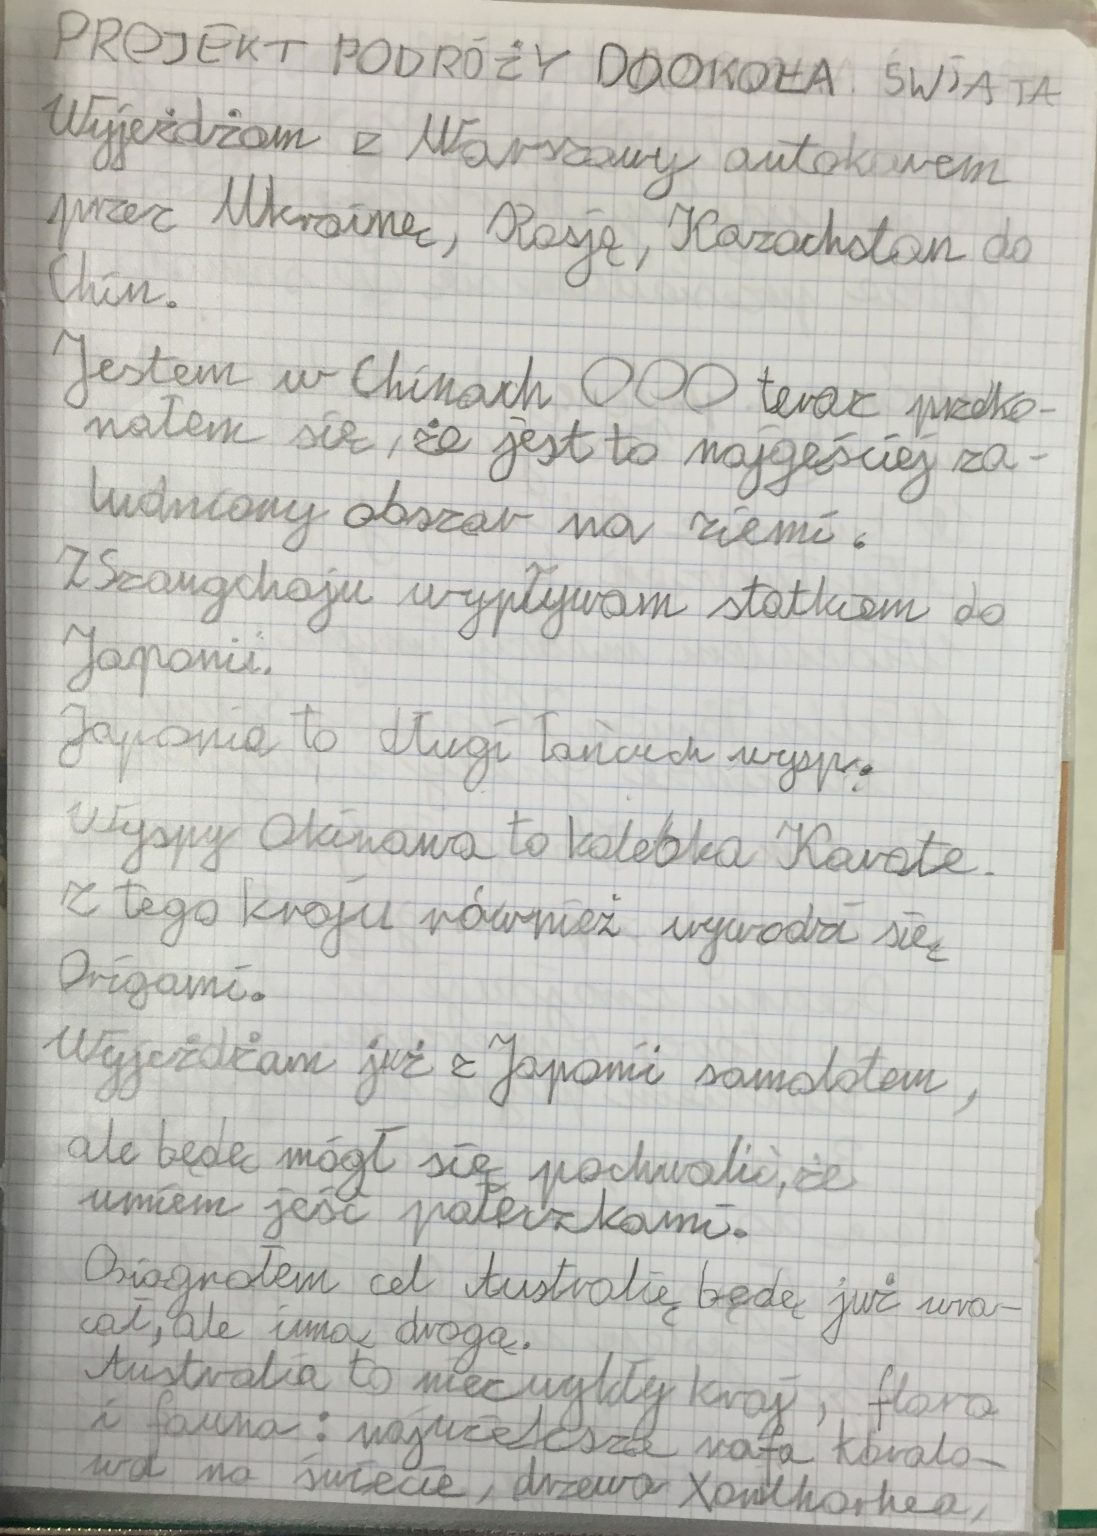 PROJEKT PODRÓŻY DOOKOŁA ŚWIATA
Wyjeżdżam z Warszawy autokarem
przez Ukrainę, Rosję, Kazachstan do
Chin.
Jestem w Chinach OOO teraz przeko-
nałem się, że jest to najgęściej za-
ludniony obszar na ziemi.
Z Szanghaju wypływam statkiem do
Japonii.
Japonia to długi łańcuch wysp.
Wyspy Okinawa to kolebka Karate.
z tego kraju również wywodzi się
Origami.
Wyjeżdżam już z Japonii samolotem,
ale będę mógł się pochwalić, że
umiem jeść pałeczkami.
Osiągnąłem cel Australię będę już wra-
cał, ale inną drogą.
Australia to niezwykły kraj, flora
i fauna: największa rafa koralo-
wa na świecie, drzewa Xanthorhea,